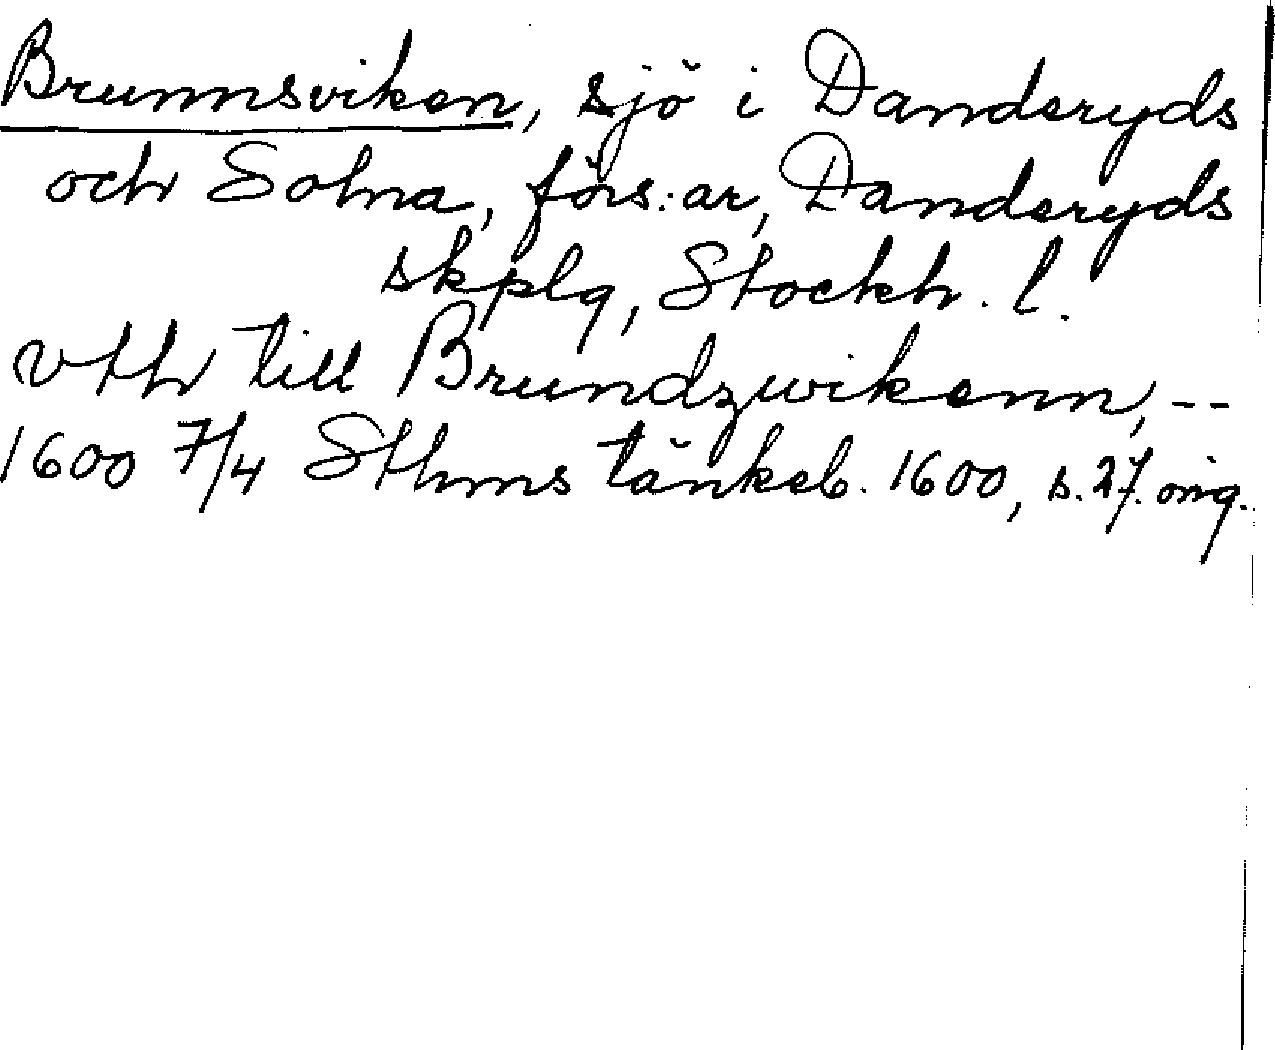 Brunnsviken, sjö i Danderyds
och Solna, förs:ar, Danderyds
skplg, Stockh. l.
vth till Brundzwikenn, --
1600 7/4 Sthms tänkeb. 1600, s. 27. orig.